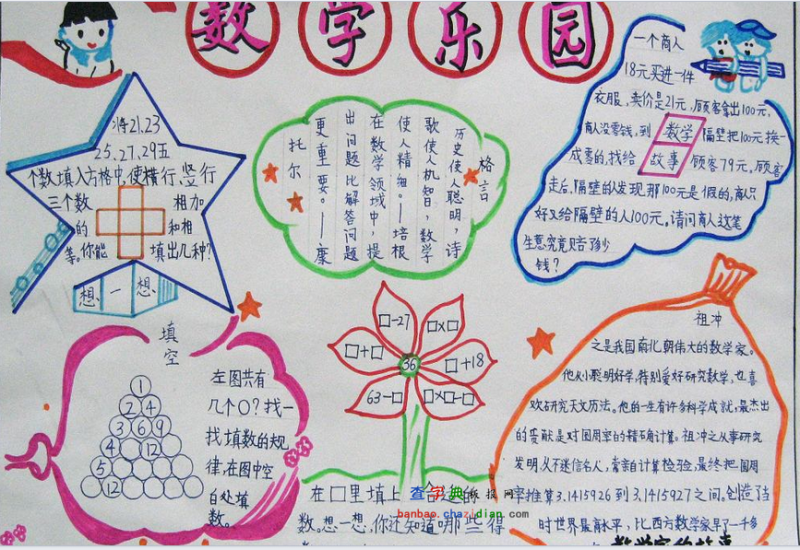 数学乐园
将21.23
25.27.29五
个数,填入方格中,使横行,竖行
三个数 相加
的 和相
等。你能 填出几种?
想一想
历史使人聪明,诗
歌使人机智,数学
使人精细。——培根
在数学领域中,提
出问题比解答问题
更重要。——康
托尔
格言
一个商人
18元买进一件
衣服,卖价是21元,顾客拿出100元,
商人没零钱,到 隔壁把100元换
成零的,找给 顾客79元,顾客
走后,隔壁的发现那100元是假的,商人只
好又给隔壁的人100元。请问商人这笔
生意究竟赔了多少
钱?
数学
故事
填空
1
2 4
3 6 9
4 12
5
12
左图共有
几个○?找一
找填数的规
律,在图中空
白处填
数。
□-27
□×□
□+□
□+18
63-□
□×□-□
36
在□里填上合适的
数,想一想,你还知道哪些得
祖冲
之是我国南北朝伟大的数学家。
他从小聪明好学,特别爱好研究数学,也喜
欢研究天文历法。他的一生有许多科学成就,最杰出
的贡献是对圆周率的精确计算。祖冲之从事研究
发明,从不迷信名人,亲自计算检验,最终把圆周
率推算3.1415926到3.1415927之间。创造了当
时世界最高水平,比西方数学家早了一千多
数学家的故事
查字典板报网
banbao.chazidian.com